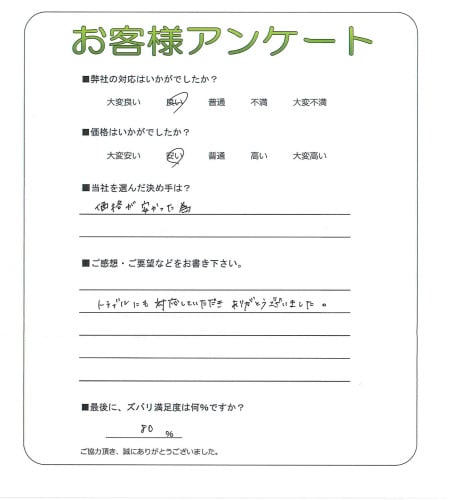 お客様アンケート
■弊社の対応はいかがでしたか?
大変良い 良い 普通 不満 大変不満
■価格はいかがでしたか?
大変安い 安い 普通 高い 大変高い
■当社を選んだ決め手は?
価格が安かった為
■ご感想・ご要望などをお書き下さい。
トラブルにも対応していただきありがとうございました。
■最後に、ズバリ満足度は何%ですか?
80 %
ご協力頂き、誠にありがとうございました。